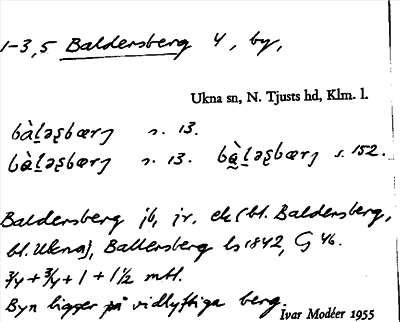 1-3,5 Baldersberg 4, by,
Ukna sn, N. Tjusts hd, Klm. l.
bàḷəʂbærj s. 13.
bàḷəʂbærj s. 13. bà̰ḷəʂbærj s. 152.
Baldersberg jb, jr, ek (bl. Baldersberg,
bl. Ukna), Ballersberg ls 1842, G 46.
3/4 + 3/4 + 1 + 1 1/2 mtl.
Byn ligger på vidlyftiga berg.
Ivar Modéer 1955